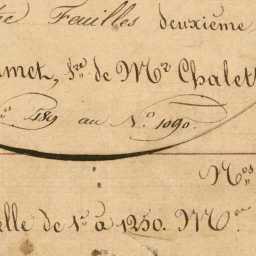 Feuilles deuxième
de Mr Chalett
489 au No 1090.
Nos
elle de 1 à 1250. M